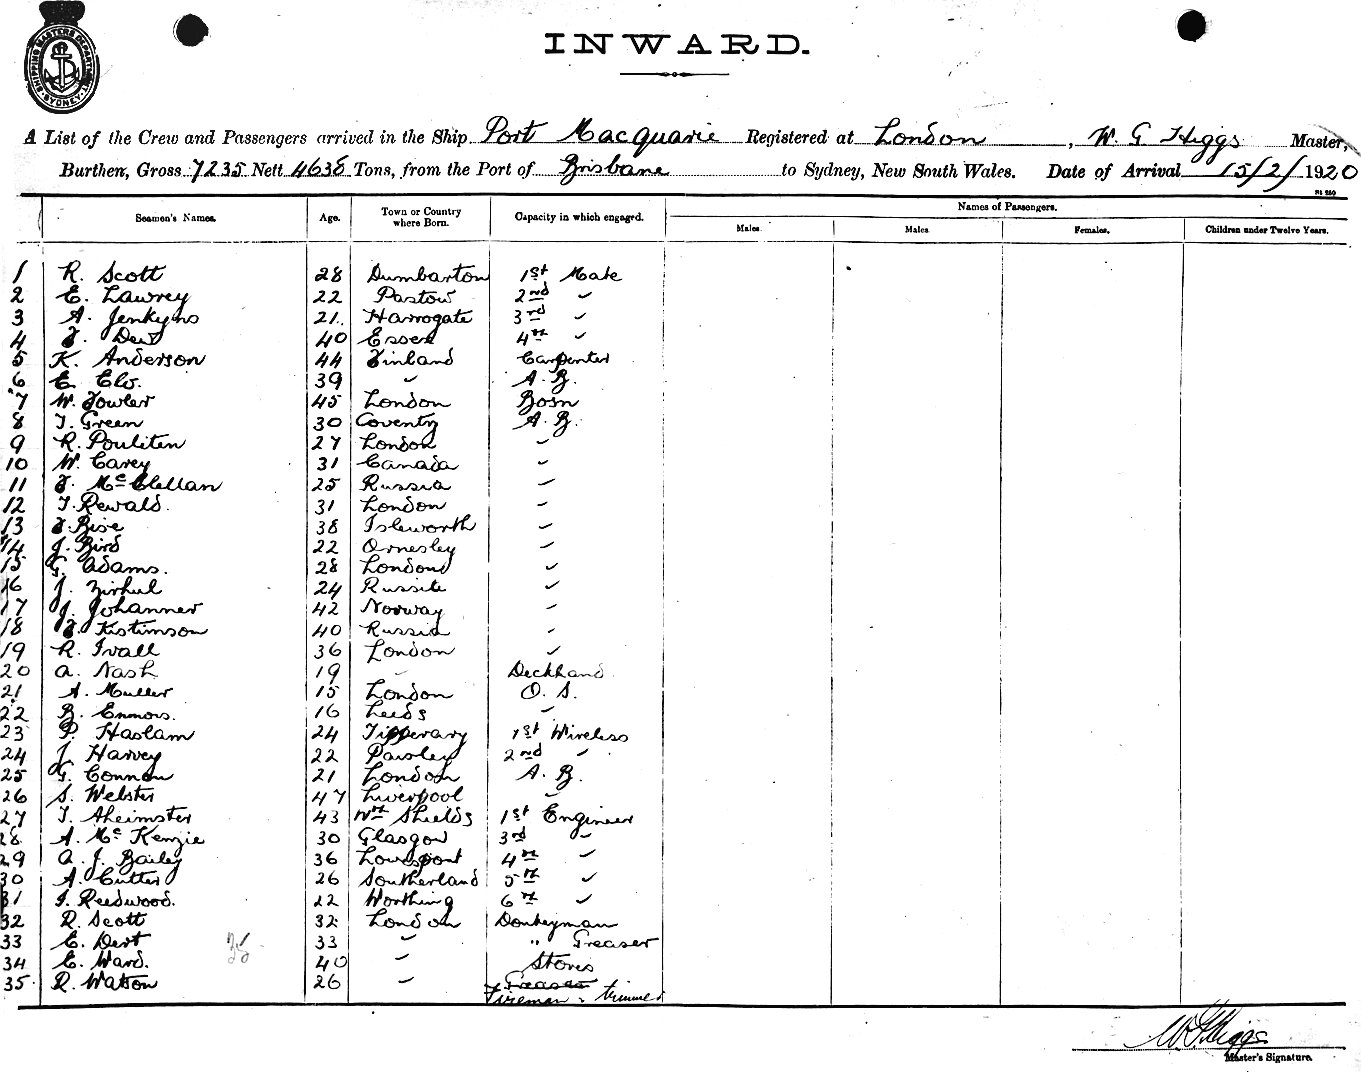 SHIPPING MASTERS DEPARTMENT SYDNEY
INWARD.
A List of the Crew and Passengers arrived in the Ship Port Macquarie Registered at London, W. G Higgs Master,
Burthen, Gross 7235 Nett 4638 Tons, from the Port of Brisbane to Sydney, New South Wales. Date of Arrival 15/2/1920
Seamen's Names. Age. Town or Country where Born. Capacity in which engaged. Names of Passengers.
Males. Males. Females. Children under Twelve Years.
1 R. Scott 28 Dumbarton 1st Mate
2 E. Lawrey 22 Pastow 2nd "
3 A. Jenkyns 21 Harrogate 3rd "
4 40 Essex 4th "
5 K. Anderson 44 Finland Carpenter
6 E. 39 " A. B.
7 W. Fowler 45 London Bosn
8 T. Green 30 Coventry A. B.
9 R. Pouliten 27 London "
10 W. Carey 31 Canada "
11 F. McClellan 25 Russia "
12 T. Rewald. 31 London "
13 38 Isleworth "
14 J. Bird 22 Ormesley "
15 G. Adams. 28 London "
16 J. Zirkul 24 Russia "
17 J. Johanner 42 Norway "
18 Kistimson 40 Russia "
19 R. Ivall 36 London "
20 A. Nash 19 " Deckhand
21 A. Muller 15 London O. S.
22 B. Emmors. 16 Leeds "
23 P. Haslam 24 Tipperary 1st Wireless
24 J. Harvey 22 Paisley 2nd "
25 G. 21 London A. B.
26 S. Webster 47 Liverpool "
27 T. 43 Nth Shields 1st Engineer
28 A. McKenzie 30 Glasgow 3rd "
29 A. J. Bailey 36 4th "
30 A. Cutter 26 Southerland 5th "
31 J. Reedwood. 22 Worthing 6th "
32 R. Scott 32 London Donkeyman
33 E. Dert 33 " " Greaser
34 E. Ward. 40 " Stores
35 R. Watson 26 " Greaser
Fireman & trimmer
W G Higgs
Master's Signature.